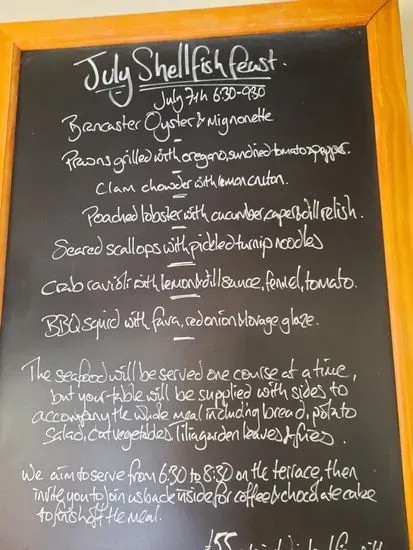 July Shellfish feast.
July 7th 6:30-9:30
Brancaster Oyster & Mignonette
Prawns grilled with oregano, sundried tomato & pepper.
Clam chowder with lemon cruton.
Poached lobster with cucumber, caper & dill relish.
Seared scallops with pickled turnip noodles
Crab ravioli with lemon & dill sauce, fennel, tomato.
BBQ squid with fava, red onion & lovage glaze.
The seafood will be served one course at a time,
but your table will be supplied with sides to
accompany the whole meal including bread, potato
Salad, cut vegetables, Tilia garden leaves & fries.
We aim to serve from 6:30 to 8:30 on the terrace, then
invite you to join us back inside for coffee & chocolate cake
to finish off the meal.
£55